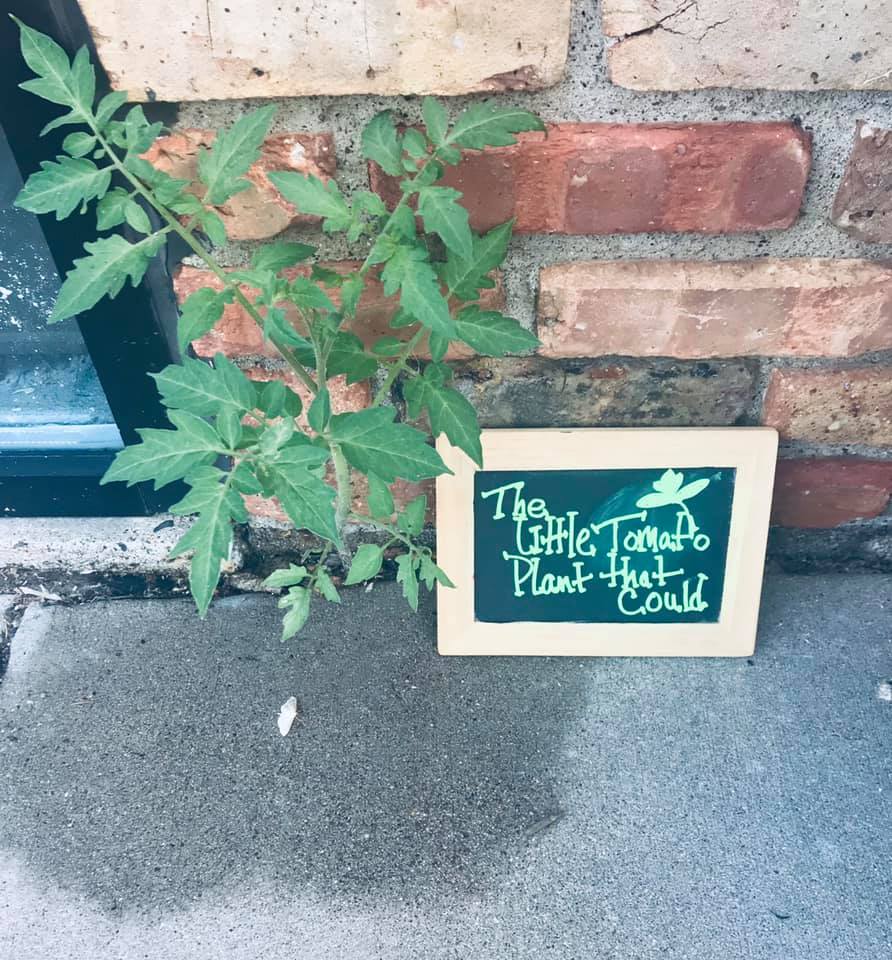 The
Little Tomato
Plant that
Could